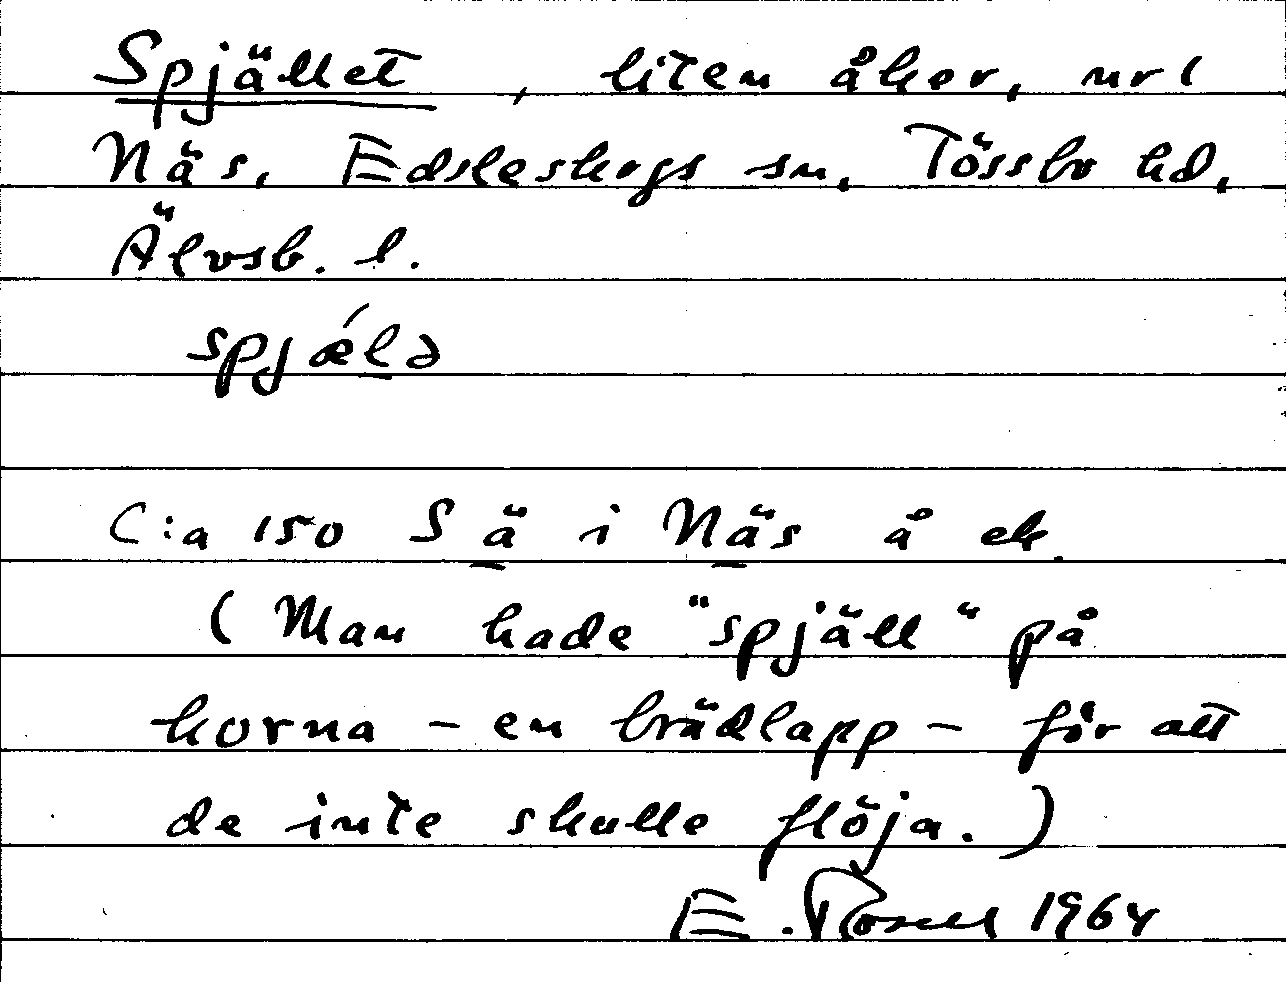 Spjället, liten åker, nr 1
Näs, Edsleskogs sn, Tössbo hd,
Älvsb. l.
spjǽlə
C:a 150 S ä i Näs å ek.
(Man hade "spjäll" på
korna – en brädlapp – för att
de inte skulle flöja.)
E. Rosell 1964